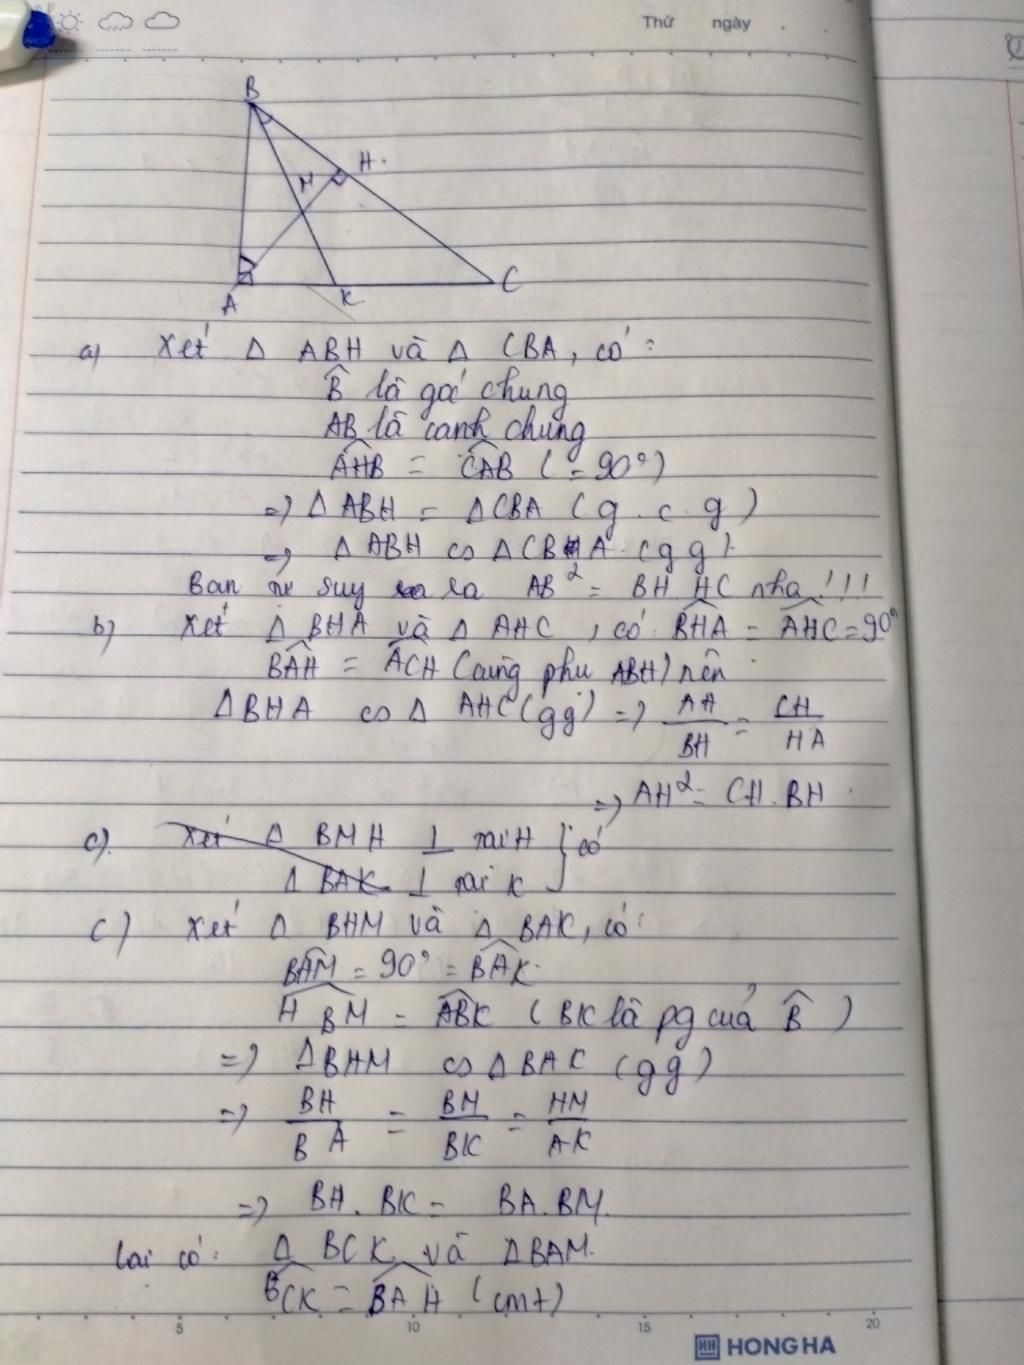 Thứ ngày
B
H
M
A
K
C
a) Xét Δ ABH và Δ CBA, có:
B̂ là góc chung
AB là cạnh chung
AHB = CAB (= 90°)
=> Δ ABH = Δ CBA (g.c.g)
=> Δ ABH ∽ Δ CBA (gg).
Bạn suy ra AB² = BH HC nha!!!
b) Xét Δ BHA và Δ AHC, có: BHA = AHC = 90°
BAH = ACH (cùng phụ ABH) nên
ΔBHA ∽ Δ AHC (gg) => AH/BH = CH/HA
=> AH² = CH.BH
c). Xét Δ BMH ⊥ tại H } có
Δ BAK ⊥ tại K
c) Xét Δ BHM và Δ BAK, có:
BAM = 90° = BAK.
HBM = ABK (BK là pg của B̂)
=> ΔBHM ∽ ΔBAK (gg)
=> BH/BA = BM/BK = HM/AK
=> BH.BK = BA.BM.
lại có: Δ BCK và ΔBAM.
BCK = BAH (cmt)
5 10 15 20
HH HONG HA